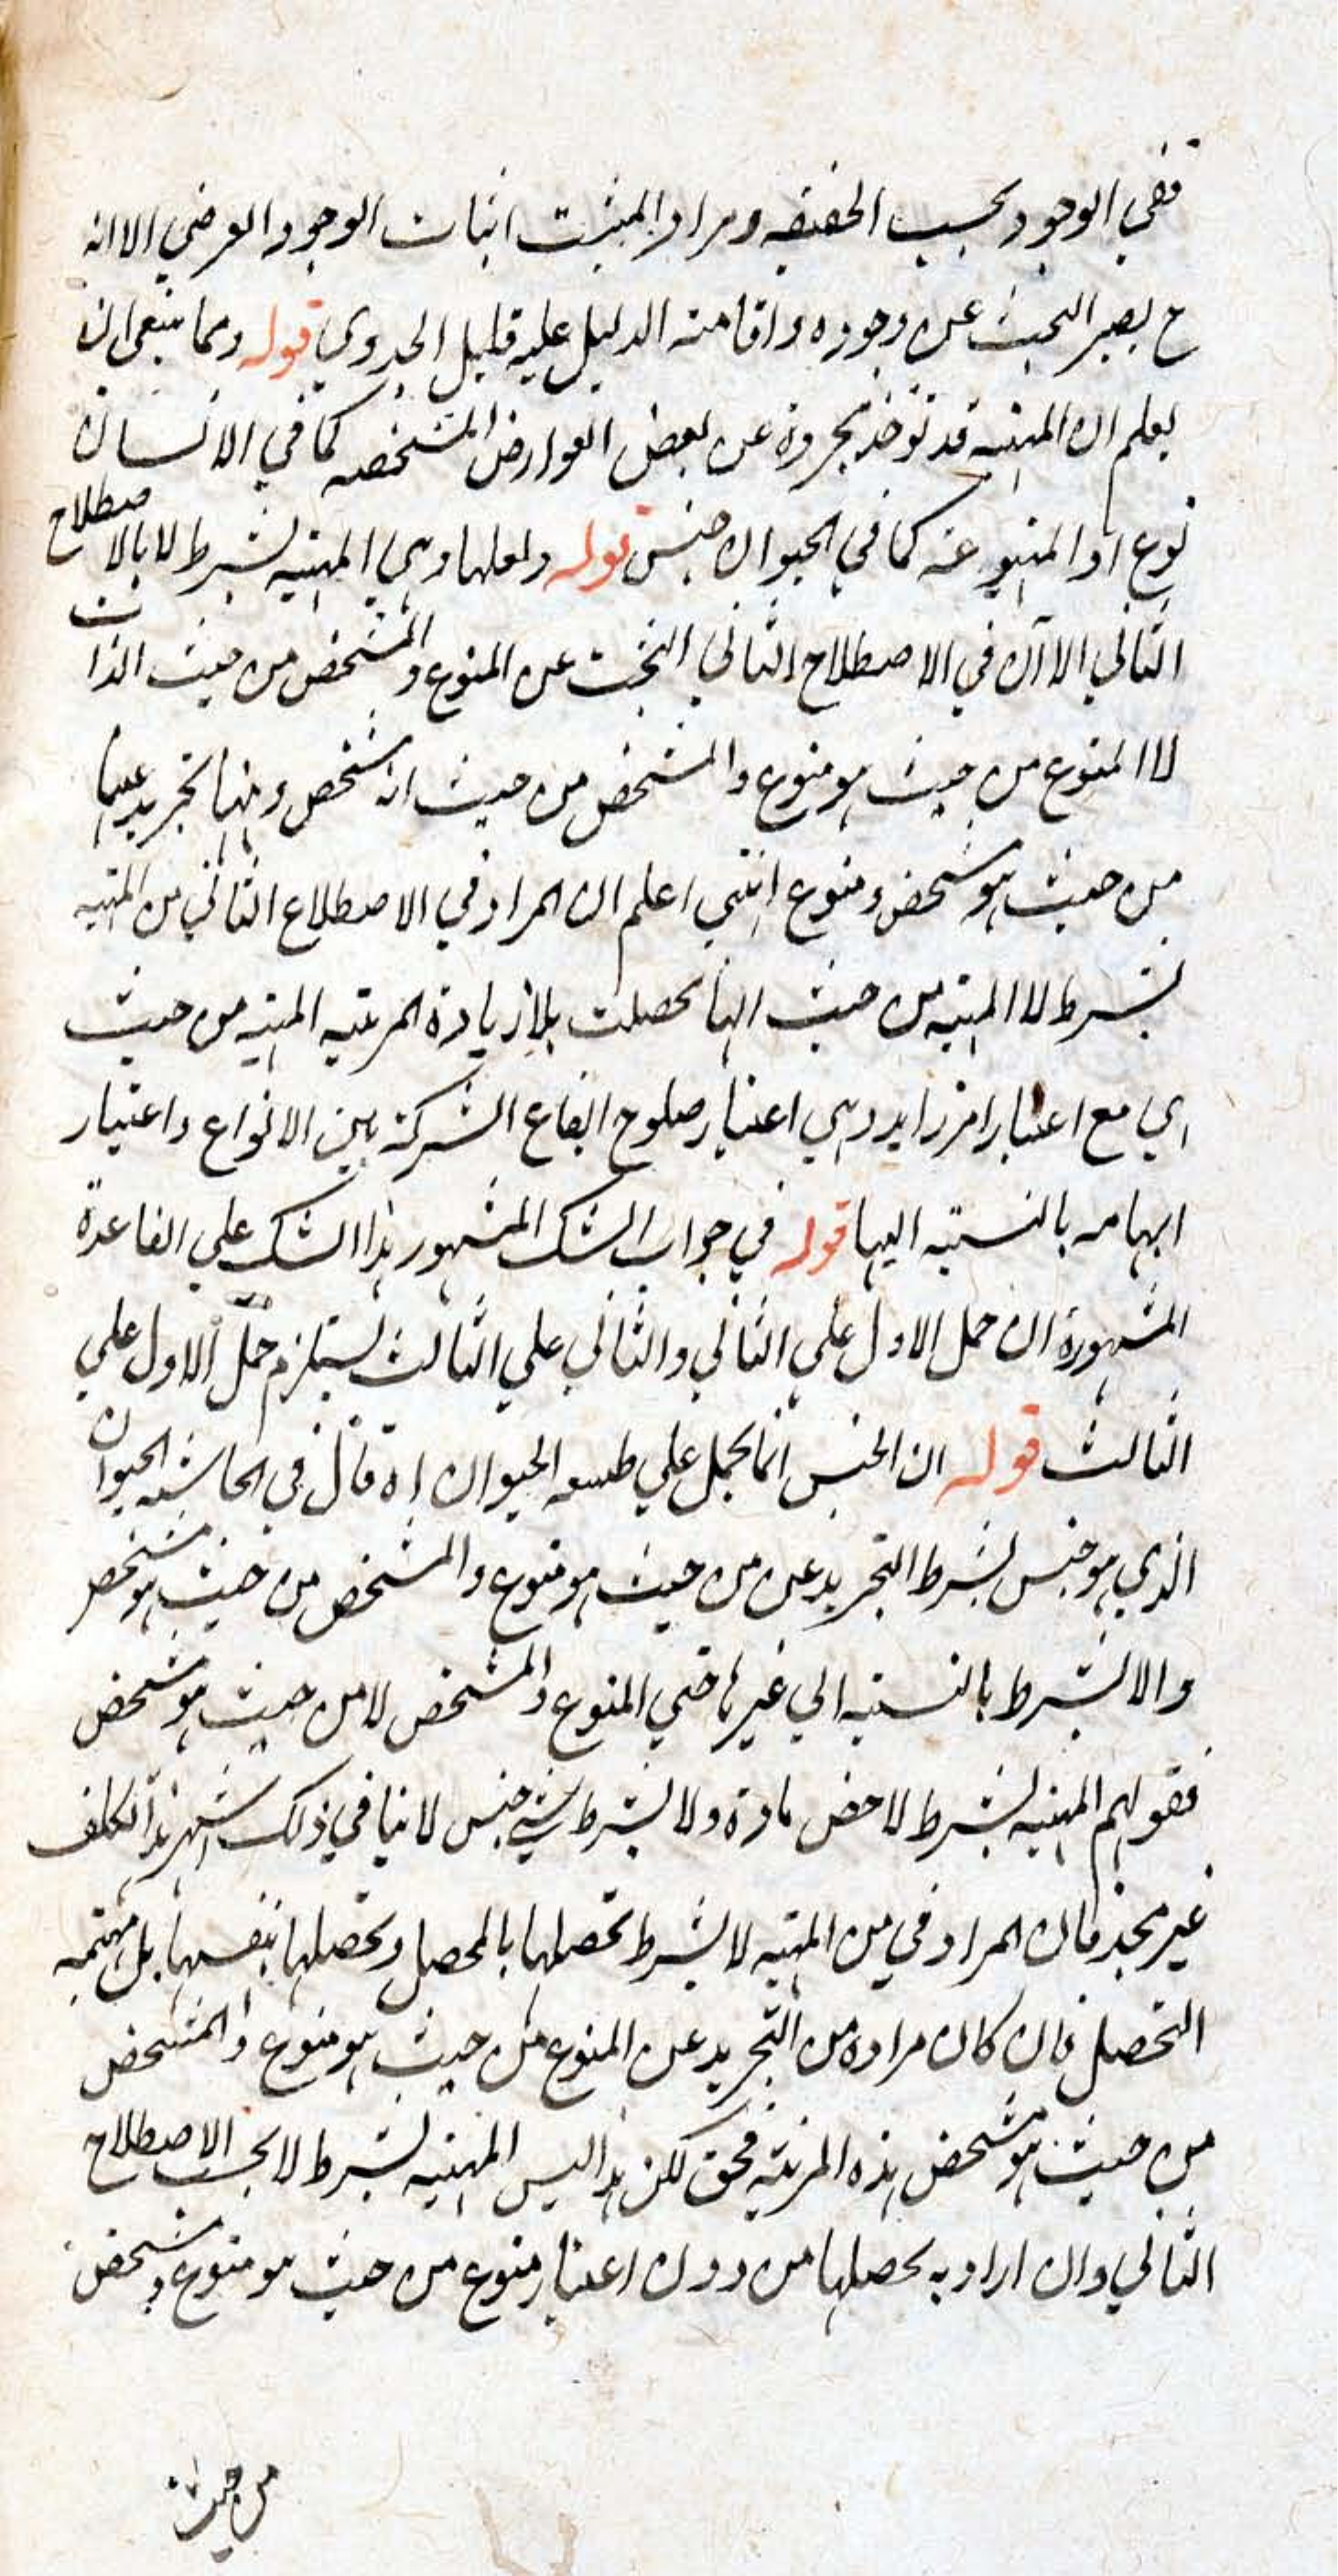 نفي الوجود بحسب الحقيقه ومراد المثبت اثبات الوجود العرضي الا انه
ح يصير البحث عن وجوده واقامته الدليل عليه قليل الجدوي قوله ومما ينبغي ان
يعلم ان المهيه قد توخذ مجردة عن بعض العوارض المشخصه كما في الانسان
نوع او المنوعه كما في الحيوان جنس قوله ولعلها وهي المهية بشرط لا بالاصطلاح
الثاني الا ان في الاصطلاح الثاني البحث عن المنوع والمشخص من حيث الذات
لا المنوع من حيث هو منوع والمشخص من حيث انه مشخص وبها تجريد عنهما
من حيث هو مشخص ومنوع انتهي اعلم ان المراد في الاصطلاع الثاني من المهيه
بشرط لا المهيه من حيث انها تحصلت بلا زيادة المرتبه المهيه من حيث
هي مع اعتبار امر زايد وهي اعتبار صلوح ايقاع الشركة بين الانواع واعتبار
ابهامه بالنسبته اليها قوله في جواب الشك المشهور هذا الشك علي القاعدة
المشهورة ان حمل الاول علي الثاني والثاني علي الثالث يستلزم حمل الاول علي
الثالث قوله ان الجنس انما يحمل علي طبيعه الحيوان اه قال في الحاشيه الحيوان
الذي هو جنس بشرط التجريد عن من حيث هو منوع والمشخص من حيث هو مشخص
والا بشرط بالنسبته الي غيرها حتي المنوع والمشخص لا من حيث هو مشخص
فقولهم المهيه بشرط لا محض مادة ولا بشرط شي جنس لا ينافي ذلك انتهي هذا التكلف
غير مجد فان المراد في من المهيه لا بشرط تحصلها بالمحصل وتحصلها بنفسها بل مبهمه
التحصل فان كان مراده من التجريد عن المنوع من حيث هو منوع والمشخص
من حيث هو مشخص هذه المرتبه فحق لكن هذا ليس المهيه بشرط لا بحسب الاصطلاح
الثاني وان اراد به تحصلها من دون اعتبار منوع من حيث هو منوع ومشخص
من حيث